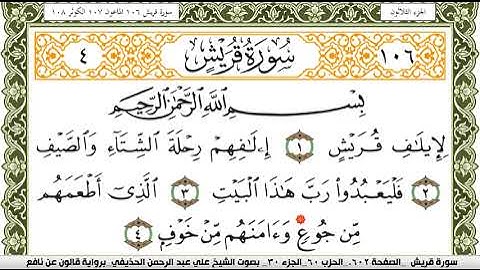 سورة قريش ١٠٦ الماعون ١٠٧ الكوثر ١٠٨
الجزء الثلاثون
١٠٦ سُورَةُ قُرَيْشٍ ٤
بِسْمِ اللَّهِ الرَّحْمَٰنِ الرَّحِيمِ
لِإِيلَٰفِ قُرَيْشٍ ١ إِۦلَٰفِهِمْ رِحْلَةَ الشِّتَآءِ وَالصَّيْفِ
٢ فَلْيَعْبُدُوا۟ رَبَّ هَٰذَا الْبَيْتِ ٣ الَّذِىٓ أَطْعَمَهُم
مِّن جُوعٍ وَءَامَنَهُم مِّنْ خَوْفٍ ٤
سورة قريش _ الصفحة ٦٠٢_ الحزب ٦٠_ الجزء ٣٠_ بصوت الشيخ علي عبد الرحمن الحذيفي_ برواية قالون عن نافع